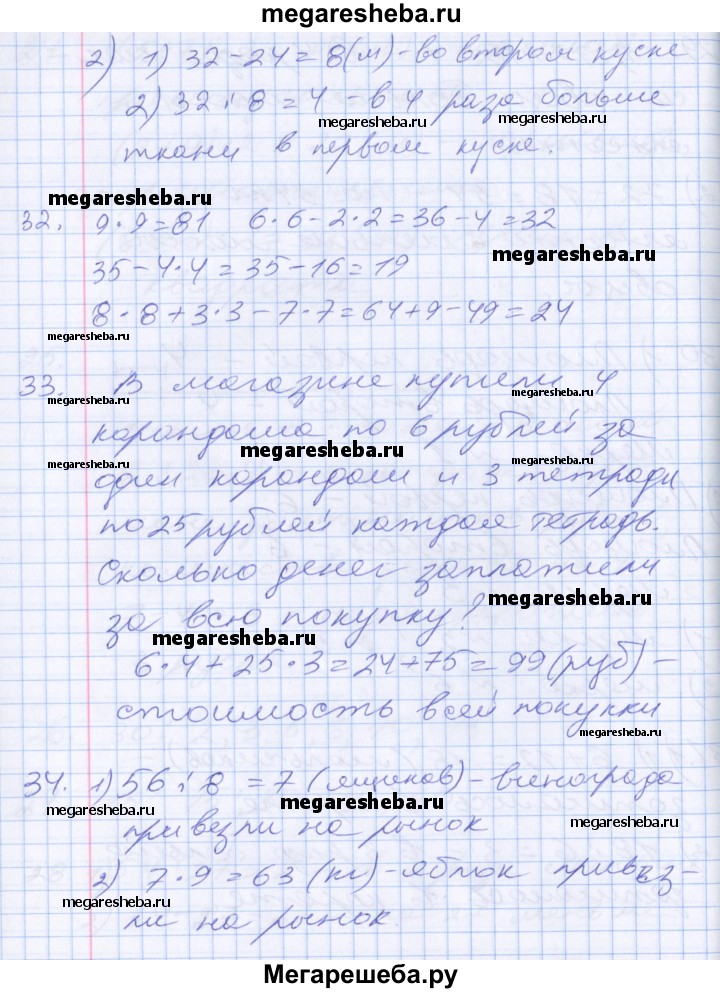 megaresheba.ru
2) 1) 32-24=8(м)-во втором куске
2) 32:8=4 - в 4 раза больше
megaresheba.ru megaresheba.ru
ткани в первом куске.
megaresheba.ru
32. 9·9=81 6·6-2·2=36-4=32
megaresheba.ru
35-4·4=35-16=19
8·8+3·3-7·7=64+9-49=24
megaresheba.ru megaresheba.ru
33. В магазине купили 4
megaresheba.ru megaresheba.ru
карандаша по 6 рублей за
megaresheba.ru
megaresheba.ru megaresheba.ru
один карандаш и 3 тетради
по 25 рублей каждая тетрадь.
Сколько денег заплатили
megaresheba.ru
за всю покупку?
megaresheba.ru
6·4+25·3=24+75=99(руб)-
стоимость всей покупки
34. 1) 56:8=7 (ящиков)-винограда
megaresheba.ru megaresheba.ru
привезли на рынок
megaresheba.ru
2) 7·9=63 (кг)-яблок привез-
megaresheba.ru
ли на рынок.
megaresheba.ru
Мегарешеба.ру